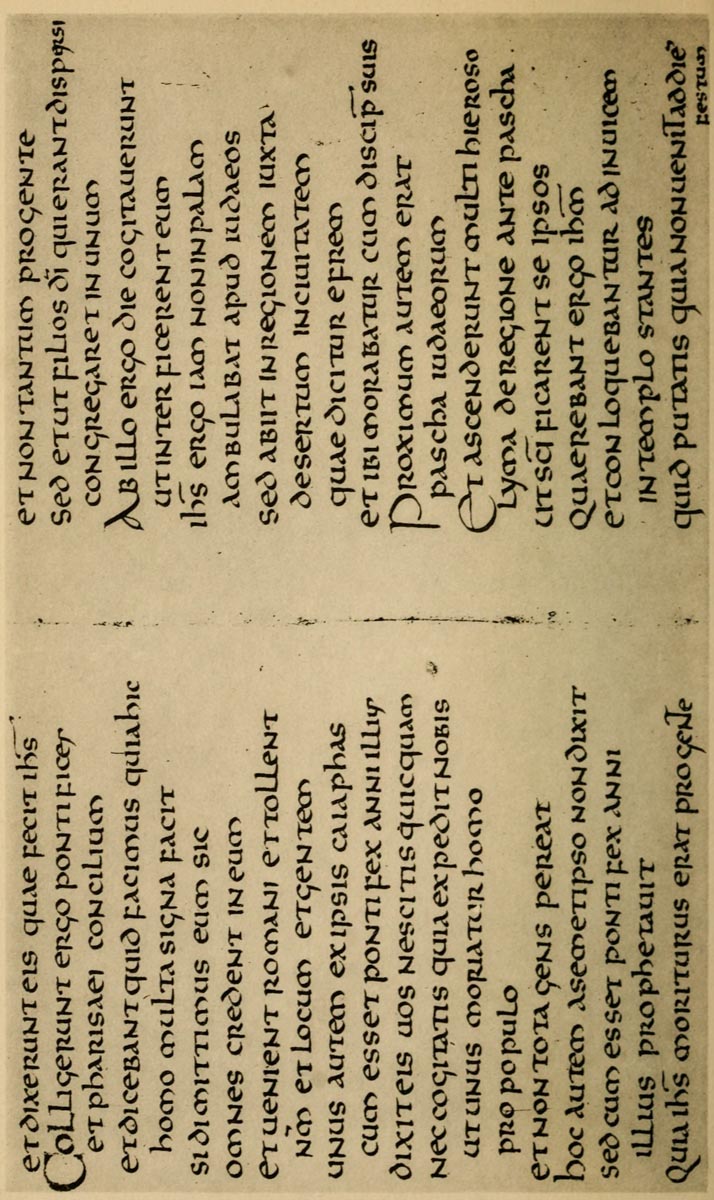 et dixerunt eis quae fecit ihs̄
Colligerunt ergo pontifices
et pharisaei concilium
et dicebant quid facimus quia hic
homo multa signa facit
si dimittimus eum sic
omnes credent in eum
et uenient romani et tollent
nm̄ et locum et gentem
unus autem ex ipsis caiaphas
cum esset pontifex anni illius
dixit eis uos nescitis quicquam
nec cogitatis quia expedit nobis
ut unus moriatur homo
pro populo
et non tota gens pereat
hoc autem a semetipso non dixit
sed cum esset pontifex anni
illius prophetauit
Quia ihs̄ moriturus erat pro gente
et non tantum pro gente
sed et ut filios dī qui erant dispersi
congregaret in unum
Ab illo ergo die cogitauerunt
ut interficerent eum
ihs̄ ergo iam non in palam
ambulabat apud iudaeos
sed abiit in regionem iuxta
desertum in ciuitatem
quae dicitur efrem
et ibi morabatur cum discip̄ suis
Proximum autem erat
pascha iudaeorum
Et ascenderunt multi hieroso
lyma de regione ante pascha
ut scī ficarent se ipsos
Quaerebant ergo ihm̄
et conloquebantur ad inuicem
in templo stantes
quid putatis quia non uenit ad die
festum